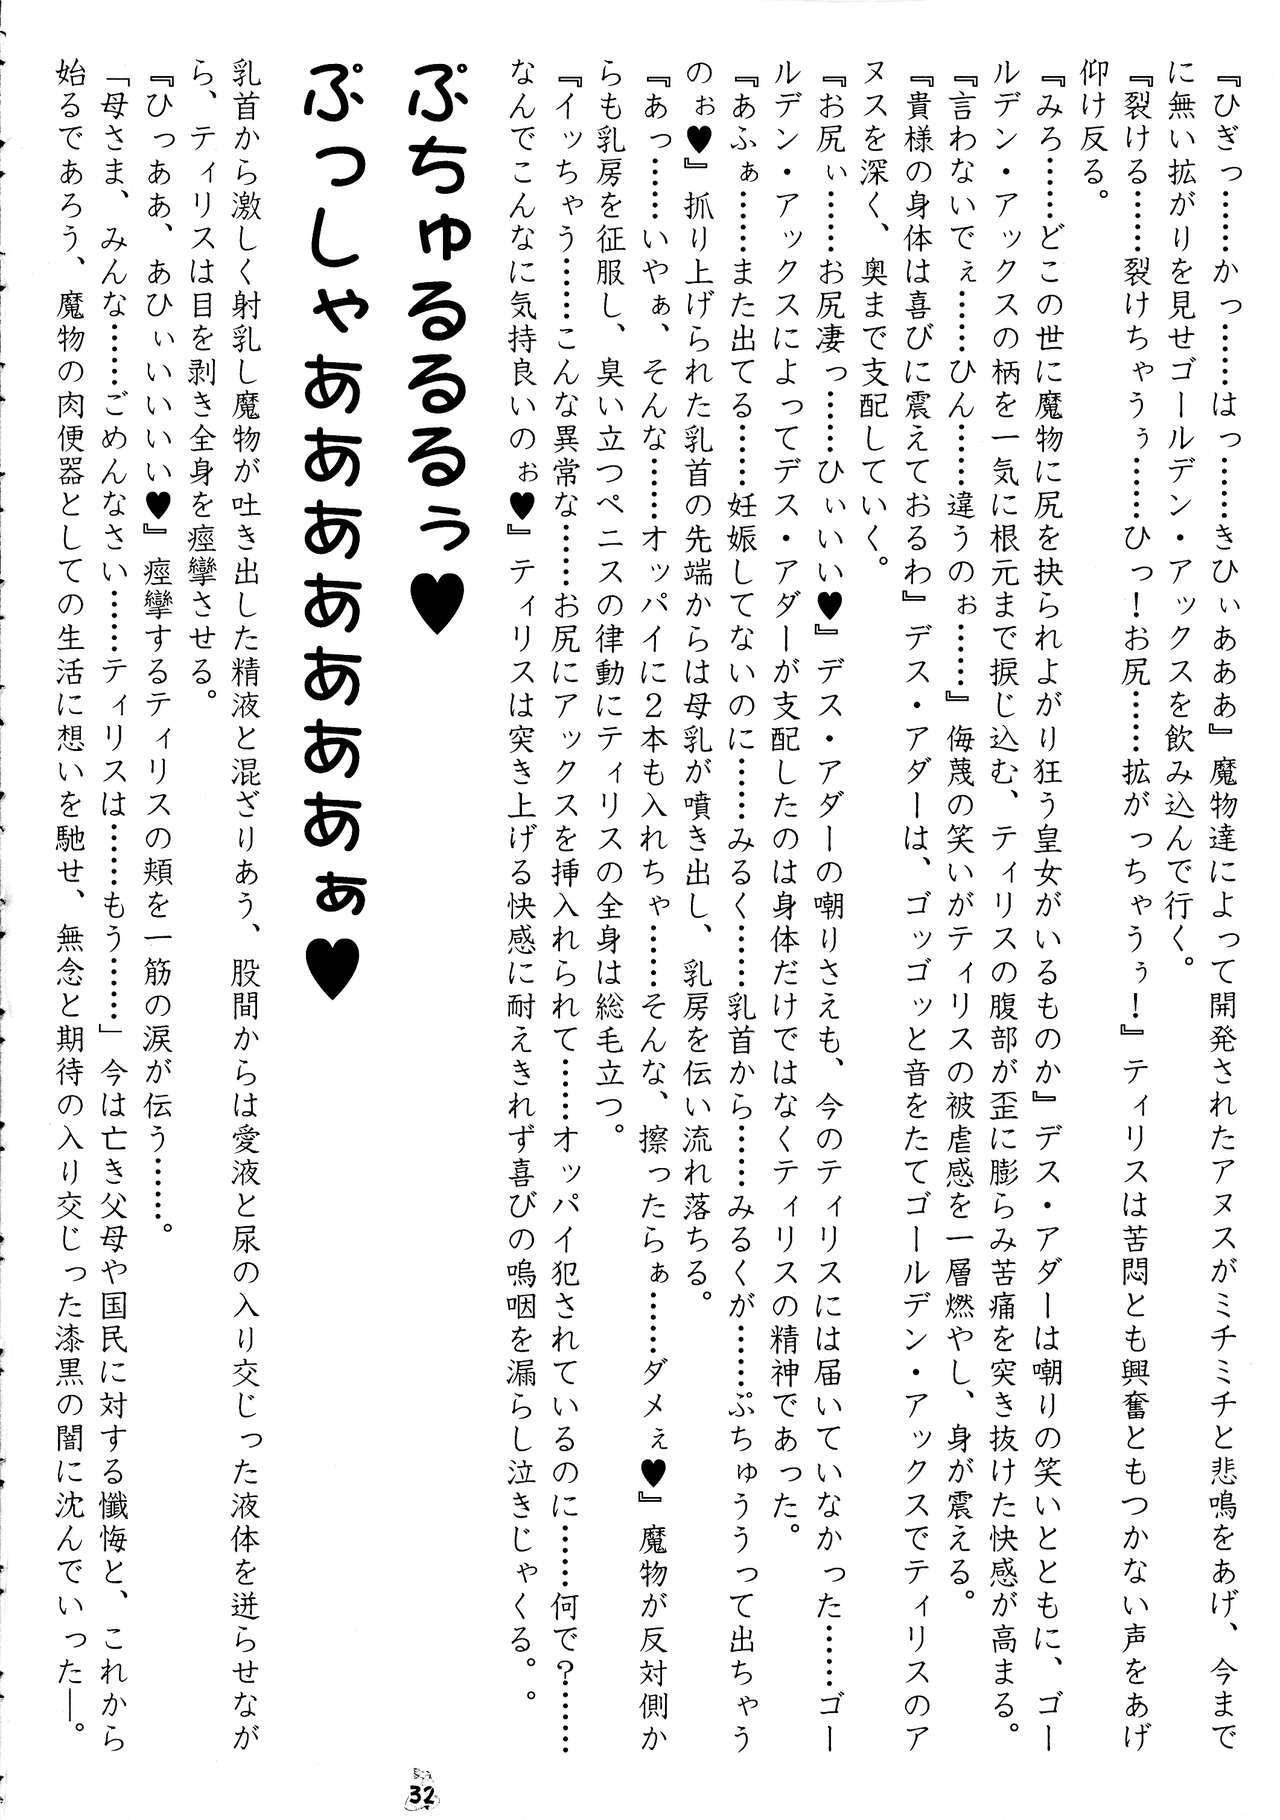 『ひぎっ……かっ……はっ……きひぃあああ』魔物達によって開発されたアヌスがミチミチと悲鳴をあげ、今まで
に無い拡がりを見せゴールデン・アックスを飲み込んで行く。
『裂ける……裂けちゃうぅ……ひっ！お尻……拡がっちゃうぅ！』ティリスは苦悶とも興奮ともつかない声をあげ
仰け反る。
『みろ……どこの世に魔物に尻を抉られよがり狂う皇女がいるものか』デス・アダーは嘲りの笑いとともに、ゴー
ルデン・アックスの柄を一気に根元まで捩じ込む、ティリスの腹部が歪に膨らみ苦痛を突き抜けた快感が高まる。
『言わないでぇ……ひん……違うのぉ……』侮蔑の笑いがティリスの被虐感を一層燃やし、身が震える。
『貴様の身体は喜びに震えておるわ』デス・アダーは、ゴッゴッと音をたてゴールデン・アックスでティリスのア
ヌスを深く、奥まで支配していく。
『お尻ぃ……お尻凄っ……ひぃいい♥』デス・アダーの嘲りさえも、今のティリスには届いていなかった……ゴー
ルデン・アックスによってデス・アダーが支配したのは身体だけではなくティリスの精神であった。
『あふぁ……また出てる……妊娠してないのに……みるく……乳首から……みるくが……ぷちゅううって出ちゃう
のぉ♥』抓り上げられた乳首の先端からは母乳が噴き出し、乳房を伝い流れ落ちる。
『あっ……いやぁ、そんな……オッパイに２本も入れちゃ……そんな、擦ったらぁ……ダメぇ♥』魔物が反対側か
らも乳房を征服し、臭い立つペニスの律動にティリスの全身は総毛立つ。
『イッちゃう……こんな異常な……お尻にアックスを挿入れられて……オッパイ犯されているのに……何で？……
なんでこんなに気持良いのぉ♥』ティリスは突き上げる快感に耐えきれず喜びの嗚咽を漏らし泣きじゃくる。。
ぷちゅるるるぅ♥
ぷっしゃああああああぁ♥
乳首から激しく射乳し魔物が吐き出した精液と混ざりあう、股間からは愛液と尿の入り交じった液体を迸らせなが
ら、ティリスは目を剥き全身を痙攣させる。
『ひっああ、あひぃいいいい♥』痙攣するティリスの頬を一筋の涙が伝う……。
「母さま、みんな……ごめんなさい……ティリスは……もう……」今は亡き父母や国民に対する懺悔と、これから
始るであろう、魔物の肉便器としての生活に想いを馳せ、無念と期待の入り交じった漆黒の闇に沈んでいった―。
32